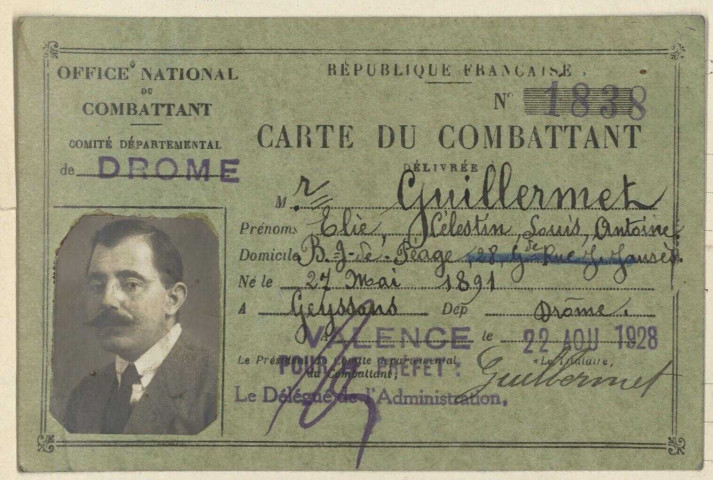 OFFICE NATIONAL
DU
COMBATTANT
COMITÉ DÉPARTEMENTAL
de DROME
RÉPUBLIQUE FRANÇAISE
N° 1838
CARTE DU COMBATTANT
DÉLIVRÉE À
M r Guillermet
Prénoms Elie, Célestin, Louis, Antoine
Domicile B.g-de-Péage, 28, Gde Rue J. Jaurès
Né le 27 Mai 1891
A Geyssans Dép Drôme.
VALENCE le 22 AOU 1928
Le Président du Comité Départemental
du Combattant,
Le Titulaire,
POUR LE PREFET :
Le Délégué de l'Administration,
Guillermet